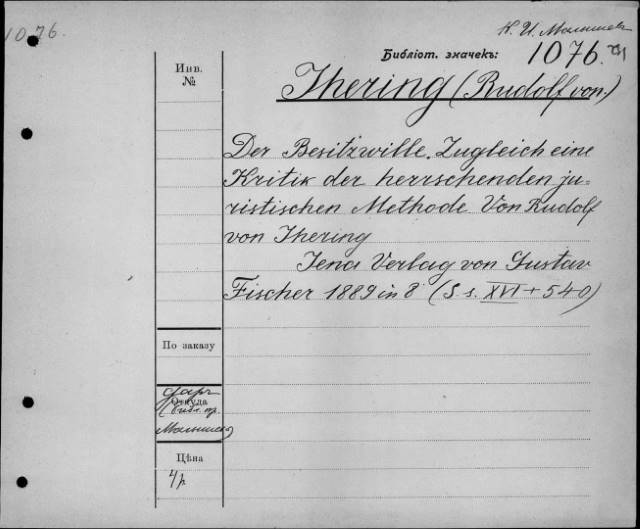 1076.
К. И. Малышев
Библіот. значекъ: 1076.
Инв.
№
Jhering (Rudolf von.)
Der Besitzwille. Zugleich eine
Kritik der herrschenden ju-
ristischen Methode Von Rudolf
von Jhering
Jena Verlag von Gustav
Fischer 1889 in 8 (S.s. XVI + 540)
По заказу
даръ
Откуда
(библ. пр.
Малышева)
Цѣна
4р